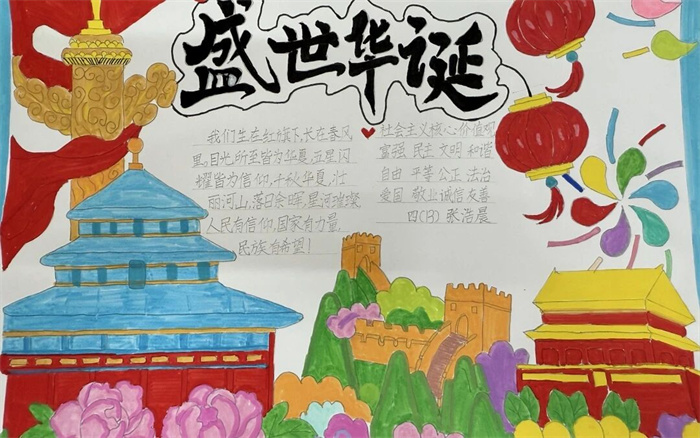 盛世华诞
我们生在红旗下,长在春风
里。目光所至皆为华夏,五星闪
耀皆为信仰,千秋华夏,壮
丽河山,落日余晖,星河璀璨
人民有信仰,国家有力量,
民族有希望!
社会主义核心价值观
富强 民主 文明 和谐
自由 平等 公正 法治
爱国 敬业 诚信 友善
四(13) 张浩晨